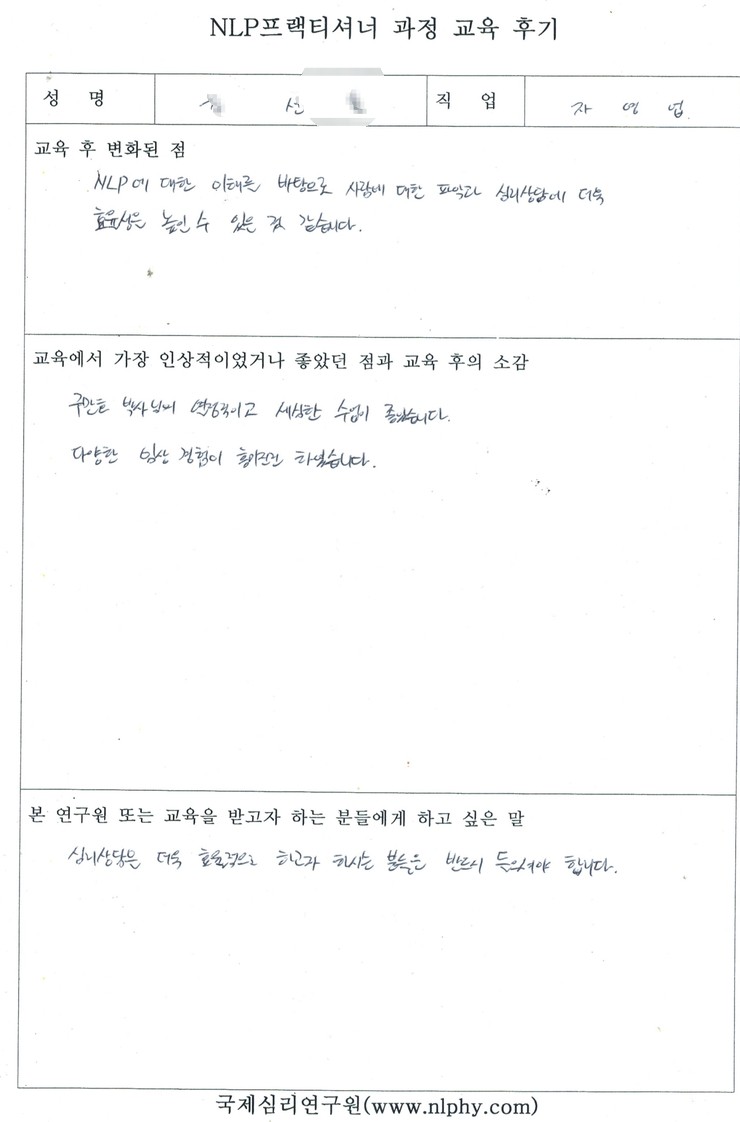 NLP프랙티셔너 과정 교육 후기
성 명 선 직 업 자 영 업
교육 후 변화된 점
NLP에 대한 이해를 바탕으로 사람에 대한 파악과 심리상담에 더욱
효율성을 높일 수 있을 것 같습니다.
교육에서 가장 인상적이었거나 좋았던 점과 교육 후의 소감
박사님의 열정적이고 세심한 수업이 좋았습니다.
다양한 임상 경험이 와닿았습니다.
본 연구원 또는 교육을 받고자 하는 분들에게 하고 싶은 말
심리상담을 더욱 효율적으로 하고자 하시는 분들은 반드시 들으셔야 합니다.
국제심리연구원(www.nlphy.com)